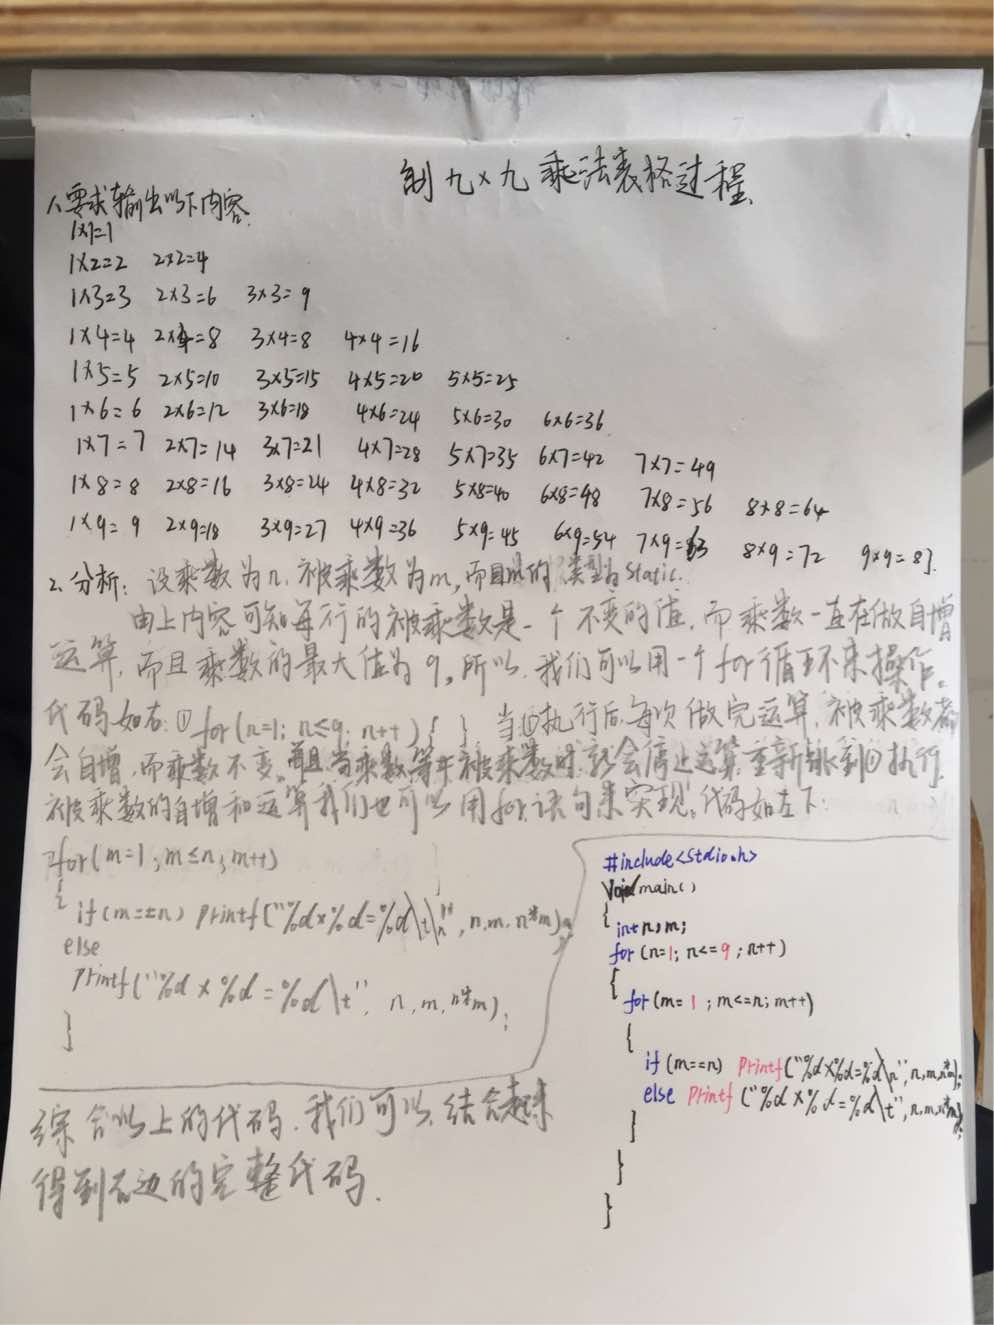 制九×九乘法表格过程.
1、要求输出以下内容.
1×1=1
1×2=2 2×2=4
1×3=3 2×3=6 3×3=9
1×4=4 2×4=8 3×4=8 4×4=16
1×5=5 2×5=10 3×5=15 4×5=20 5×5=25
1×6=6 2×6=12 3×6=18 4×6=24 5×6=30 6×6=36
1×7=7 2×7=14 3×7=21 4×7=28 5×7=35 6×7=42 7×7=49
1×8=8 2×8=16 3×8=24 4×8=32 5×8=40 6×8=48 7×8=56 8×8=64
1×9=9 2×9=18 3×9=27 4×9=36 5×9=45 6×9=54 7×9=63 8×9=72 9×9=81.
2、分析: 设乘数为n, 被乘数为m, 而且的类型为Static.
由上内容可知每行的被乘数是一个不变的值, 而乘数一直在做自增
运算, 而且乘数的最大值为9。所以, 我们可以用一个for循环来操作。
代码如右: ① for(n=1; n≤9; n++) { } 当①执行后每次做完运算, 被乘数都
会自增, 而乘数不变, 而且当乘数等于被乘数时就会停止运算, 重新到①执行.
被乘数的自增和运算我们也可以用for语句来实现。代码如左下:
for(m=1; m≤n; m++)
{
if(m==n) printf("%d×%d=%d\t\n", n,m, n*m);
else
printf("%d × %d = %d\t", n, m, n*m);
}
综合以上的代码, 我们可以结合起来
得到右边的完整代码.
#include<stdio.h>
Void main()
{
int n,m;
for (n=1; n<=9; n++)
{
for (m=1; m<=n; m++)
{
if (m==n) Printf("%d×%d=%d\n", n,m,n*m);
else Printf ("%d×%d=%d\t", n,m,n*m);
}
}
}